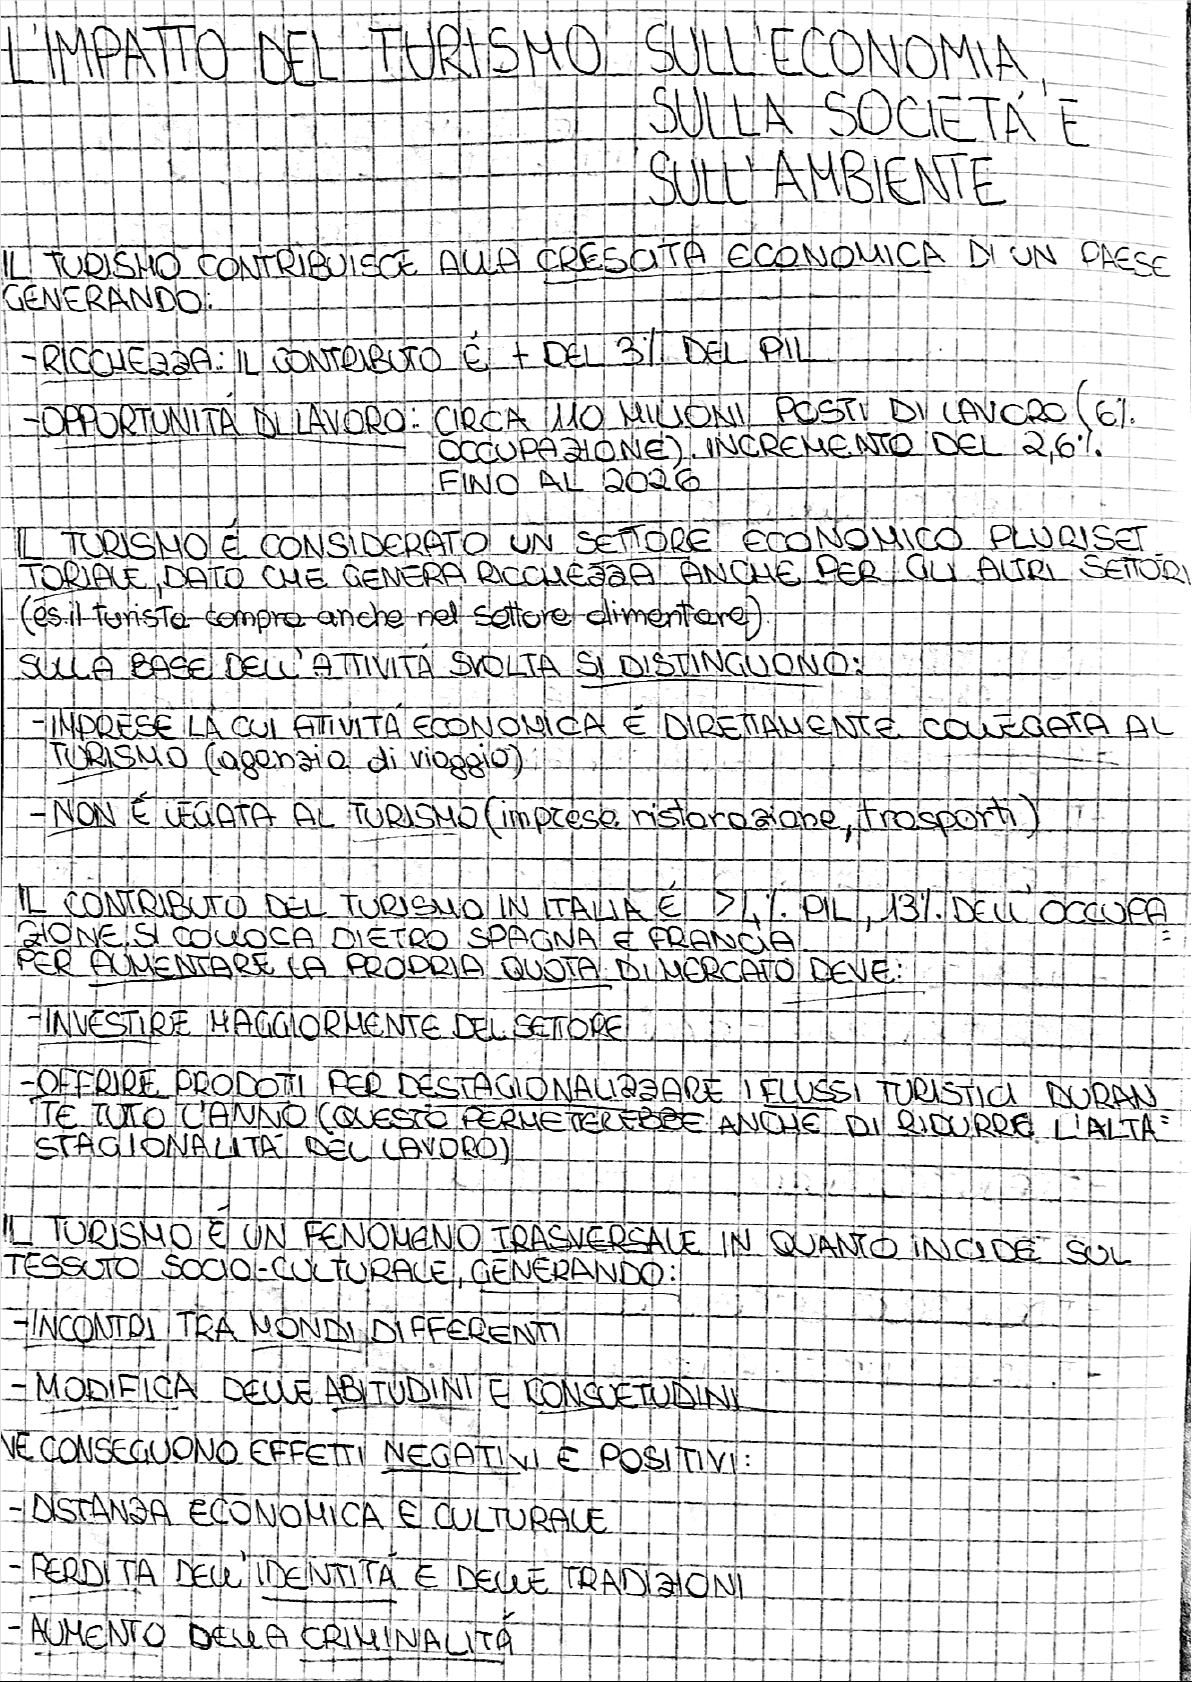 L'IMPATTO DEL TURISMO SULL'ECONOMIA,
SULLA SOCIETÁ E
SULL'AMBIENTE
IL TURISMO CONTRIBUISCE ALLA CRESCITA ECONOMICA DI UN PAESE
GENERANDO:
-RICCHEZZA: IL CONTRIBUTO É + DEL 3% DEL PIL
-OPPORTUNITÁ DI LAVORO: CIRCA 110 MILIONI POSTI DI LAVORO (6%
OCCUPAZIONE). INCREMENTO DEL 2,6%
FINO AL 2026
IL TURISMO É CONSIDERATO UN SETTORE ECONOMICO PLURISET
TORIALE, DATO CHE GENERA RICCHEZZA ANCHE PER GLI ALTRI SETTORI
(es.il turista compra anche nel settore alimentare)
SULLA BASE DELL'ATTIVITÁ SVOLTA SI DISTINGUONO:
-IMPRESE LA CUI ATIVITÁ ECONOMICA É DIRETTAMENTE COLLEGATA AL
TURISMO (agenzia di viaggio)
-NON É LEGATA AL TURISMO (imprese ristorazione, trasporti)
IL CONTRIBUTO DEL TURISMO IN ITALIA É >4% PIL, 13% DELL'OCCUPA
ZIONE. SI COLLOCA DIETRO SPAGNA E FRANCIA
PER AUMENTARE LA PROPRIA QUOTA DI MERCATO DEVE:
-INVESTIRE MAGGIORMENTE DEL SETTORE
-OFFRIRE PRODOTTI PER DESTAGIONALIZZARE I FLUSSI TURISTICI DURAN
TE TUTO L'ANNO (QUESTO PERMETEREBBE ANCHE DI RIDURRE L'ALTA
STAGIONALITÁ DEL LAVORO)
IL TURISMO É UN FENOMENO TRASVERSALE IN QUANTO INCIDE SUL
TESSUTO SOCIO-CULTURALE, GENERANDO:
-INCONTRI TRA MONDI DIFFERENTI
-MODIFICA DELLE ABITUDINI E CONSUETUDINI
NE CONSEGUONO EFFETTI NEGATIVI E POSITIVI:
-DISTANZA ECONOMICA E CULTURALE
-PERDITA DELL'IDENTITÁ E DELLE TRADIZIONI
-AUMENTO DELLA CRIMINALITÁ